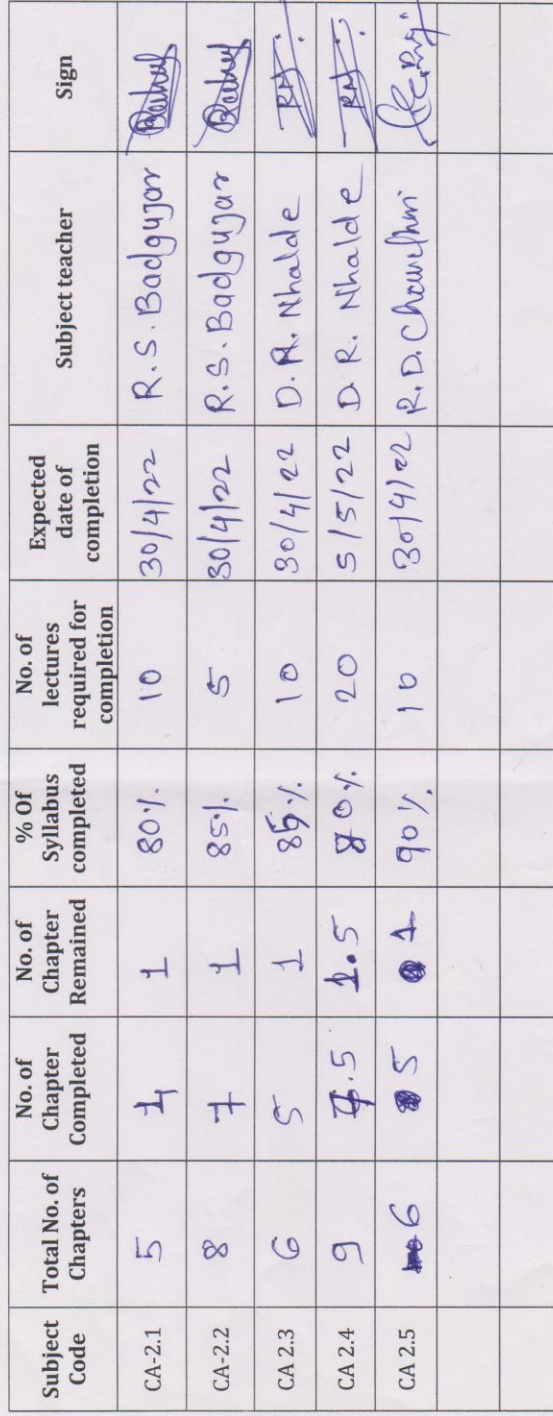 Subject Code | Total No. of Chapters | No. of Chapter Completed | No. of Chapter Remained | % Of Syllabus completed | No. of lectures required for completion | Expected date of completion | Subject teacher | Sign
CA-2.1 | 5 | 4 | 1 | 80% | 10 | 30/4/22 | R.S. Badgujar
CA-2.2 | 8 | 7 | 1 | 85% | 5 | 30/4/22 | R.S. Badgujar
CA 2.3 | 6 | 5 | 1 | 85% | 10 | 30/4/22 | D.R. Nhalde
CA 2.4 | 9 | 7.5 | 1.5 | 80% | 20 | 5/5/22 | D.R. Nhalde
CA 2.5 | 6 | 5 | 1 | 90% | 10 | 30/4/22 | R.D. Chaudhari